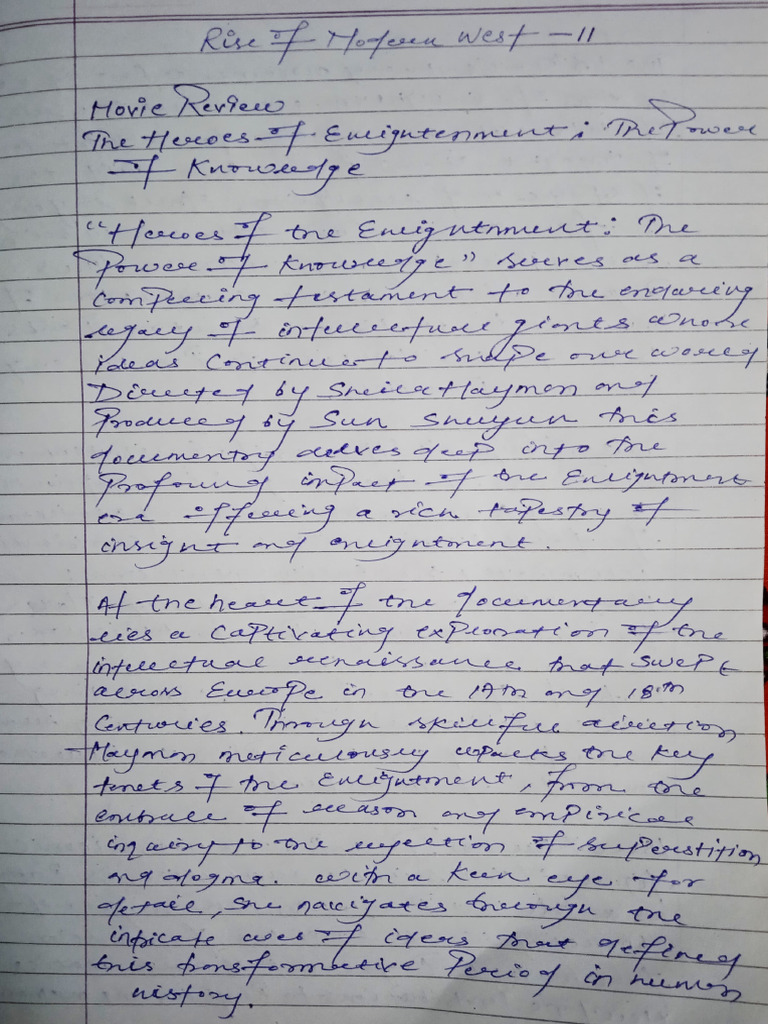 Rise of Modern West - II
Movie Review
The Heroes of Enlightenment : The Power
of Knowledge
"Heroes of the Enlightnment : The
Power of Knowledge" serves as a
compelling testament to the enduring
legacy of intellectual giants whose
ideas continue to shape our world
Directed by Sheila Hayman and
Produced by Sun Shuyun this
documentry delves deep into the
Profound impact of the Enlightnment
era offering a rich tapestry of
insight and enlightnment.
At the heart of the documentary
lies a captivating exploration of the
intellectual renaissance that swept
across Europe in the 17th and 18th
Centuries. Through skillful direction
Hayman meticulously unpacks the key
tenets of the Enlightnment, from the
embrace of reason and empirical
inquiry to the rejection of superstition
and dogma. With a keen eye for
detail, she navigates through the
intricate web of ideas that defined
this transformative Period in human
history.